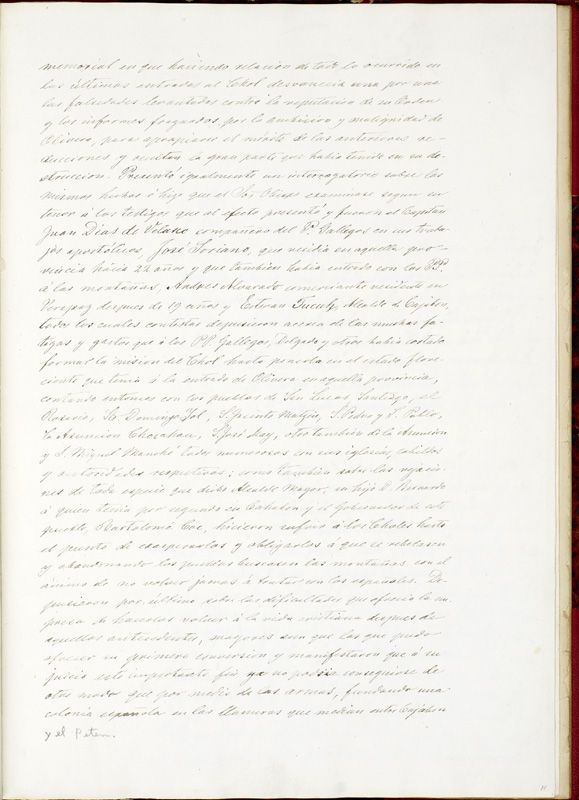 memorial en que haciendo relacion de todo lo ocurrido en
las últimas entradas al Chol desvanecia una por una
las falsedades levantadas contra la reputacion de su Orden
y los informes forjados, por la ambicion y malignidad de
Olivera, para apropiarse el mérito de las anteriores re-
ducciones y ocultar la gran parte que habia tenido en su de-
struccion. Presentó igualmente un interrogatorio sobre los
mismos hechos é hizo que el Sor Obispo examinase segun su
tenor á los testigos que al efecto presentó y fueron el Capitan
Juan Dias de Velasco compañero del P. Gallegos en sus traba-
jos apostólicos, José Soriano, que residia en aquella pro-
vincia hácia 22 años y que tambien habia entrado con los PP.
á las montañas, Andres Alvarado comerciante residente en
Verapaz despues de 19 años y Estevan Alcalde de Cajabon,
todos los cuales contestes depusieron acerca de las muchas fa-
tigas y gastos que á los PP. Gallegos, Delgado y otros habia costado
formar la mision del Chol hasta ponerla en el estado flore-
ciente que tenia á la entrada de Olivera en aquella provincia,
contando entonces con los pueblos de San Lucas, Santiago, el
Rosario, Sto. Domingo Yol, S. Jacinto Matzin, S. Pedro y S. Pablo,
La Asuncion Chocahau, S. José May, otro tambien de la Asuncion
y S. Miguel Manché todos numerosos con sus iglesias, cabildos
y autoridades respectivas; como tambien sobre las vejacio-
nes de toda especie que dicho Alcalde Mayor, su hijo D. Bernardo
á quien tenia por segundo en Cahabon y el Gobernador de este
pueblo Bartolomé Coc, hicieron sufrir á los Choles hasta
el punto de exasperarlos y obligarlos á que se rebelasen
y abandonando los pueblos buscasen las montañas con el
ánimo de no volver jamas á tratar con los españoles. De-
pusieron por último sobre las dificultades que ofrecia la em-
presa de hacerlos volver á la vida cristiana despues de
aquellos antecedentes, mayores aun que las que pudo
ofrecer su primera conversion y manifestaron que á su
juicio este importante fin ya no podria conseguirse de
otro modo que por medio de las armas, fundando una
colonia española en las llanuras que median entre Cajabon
y el Peten.